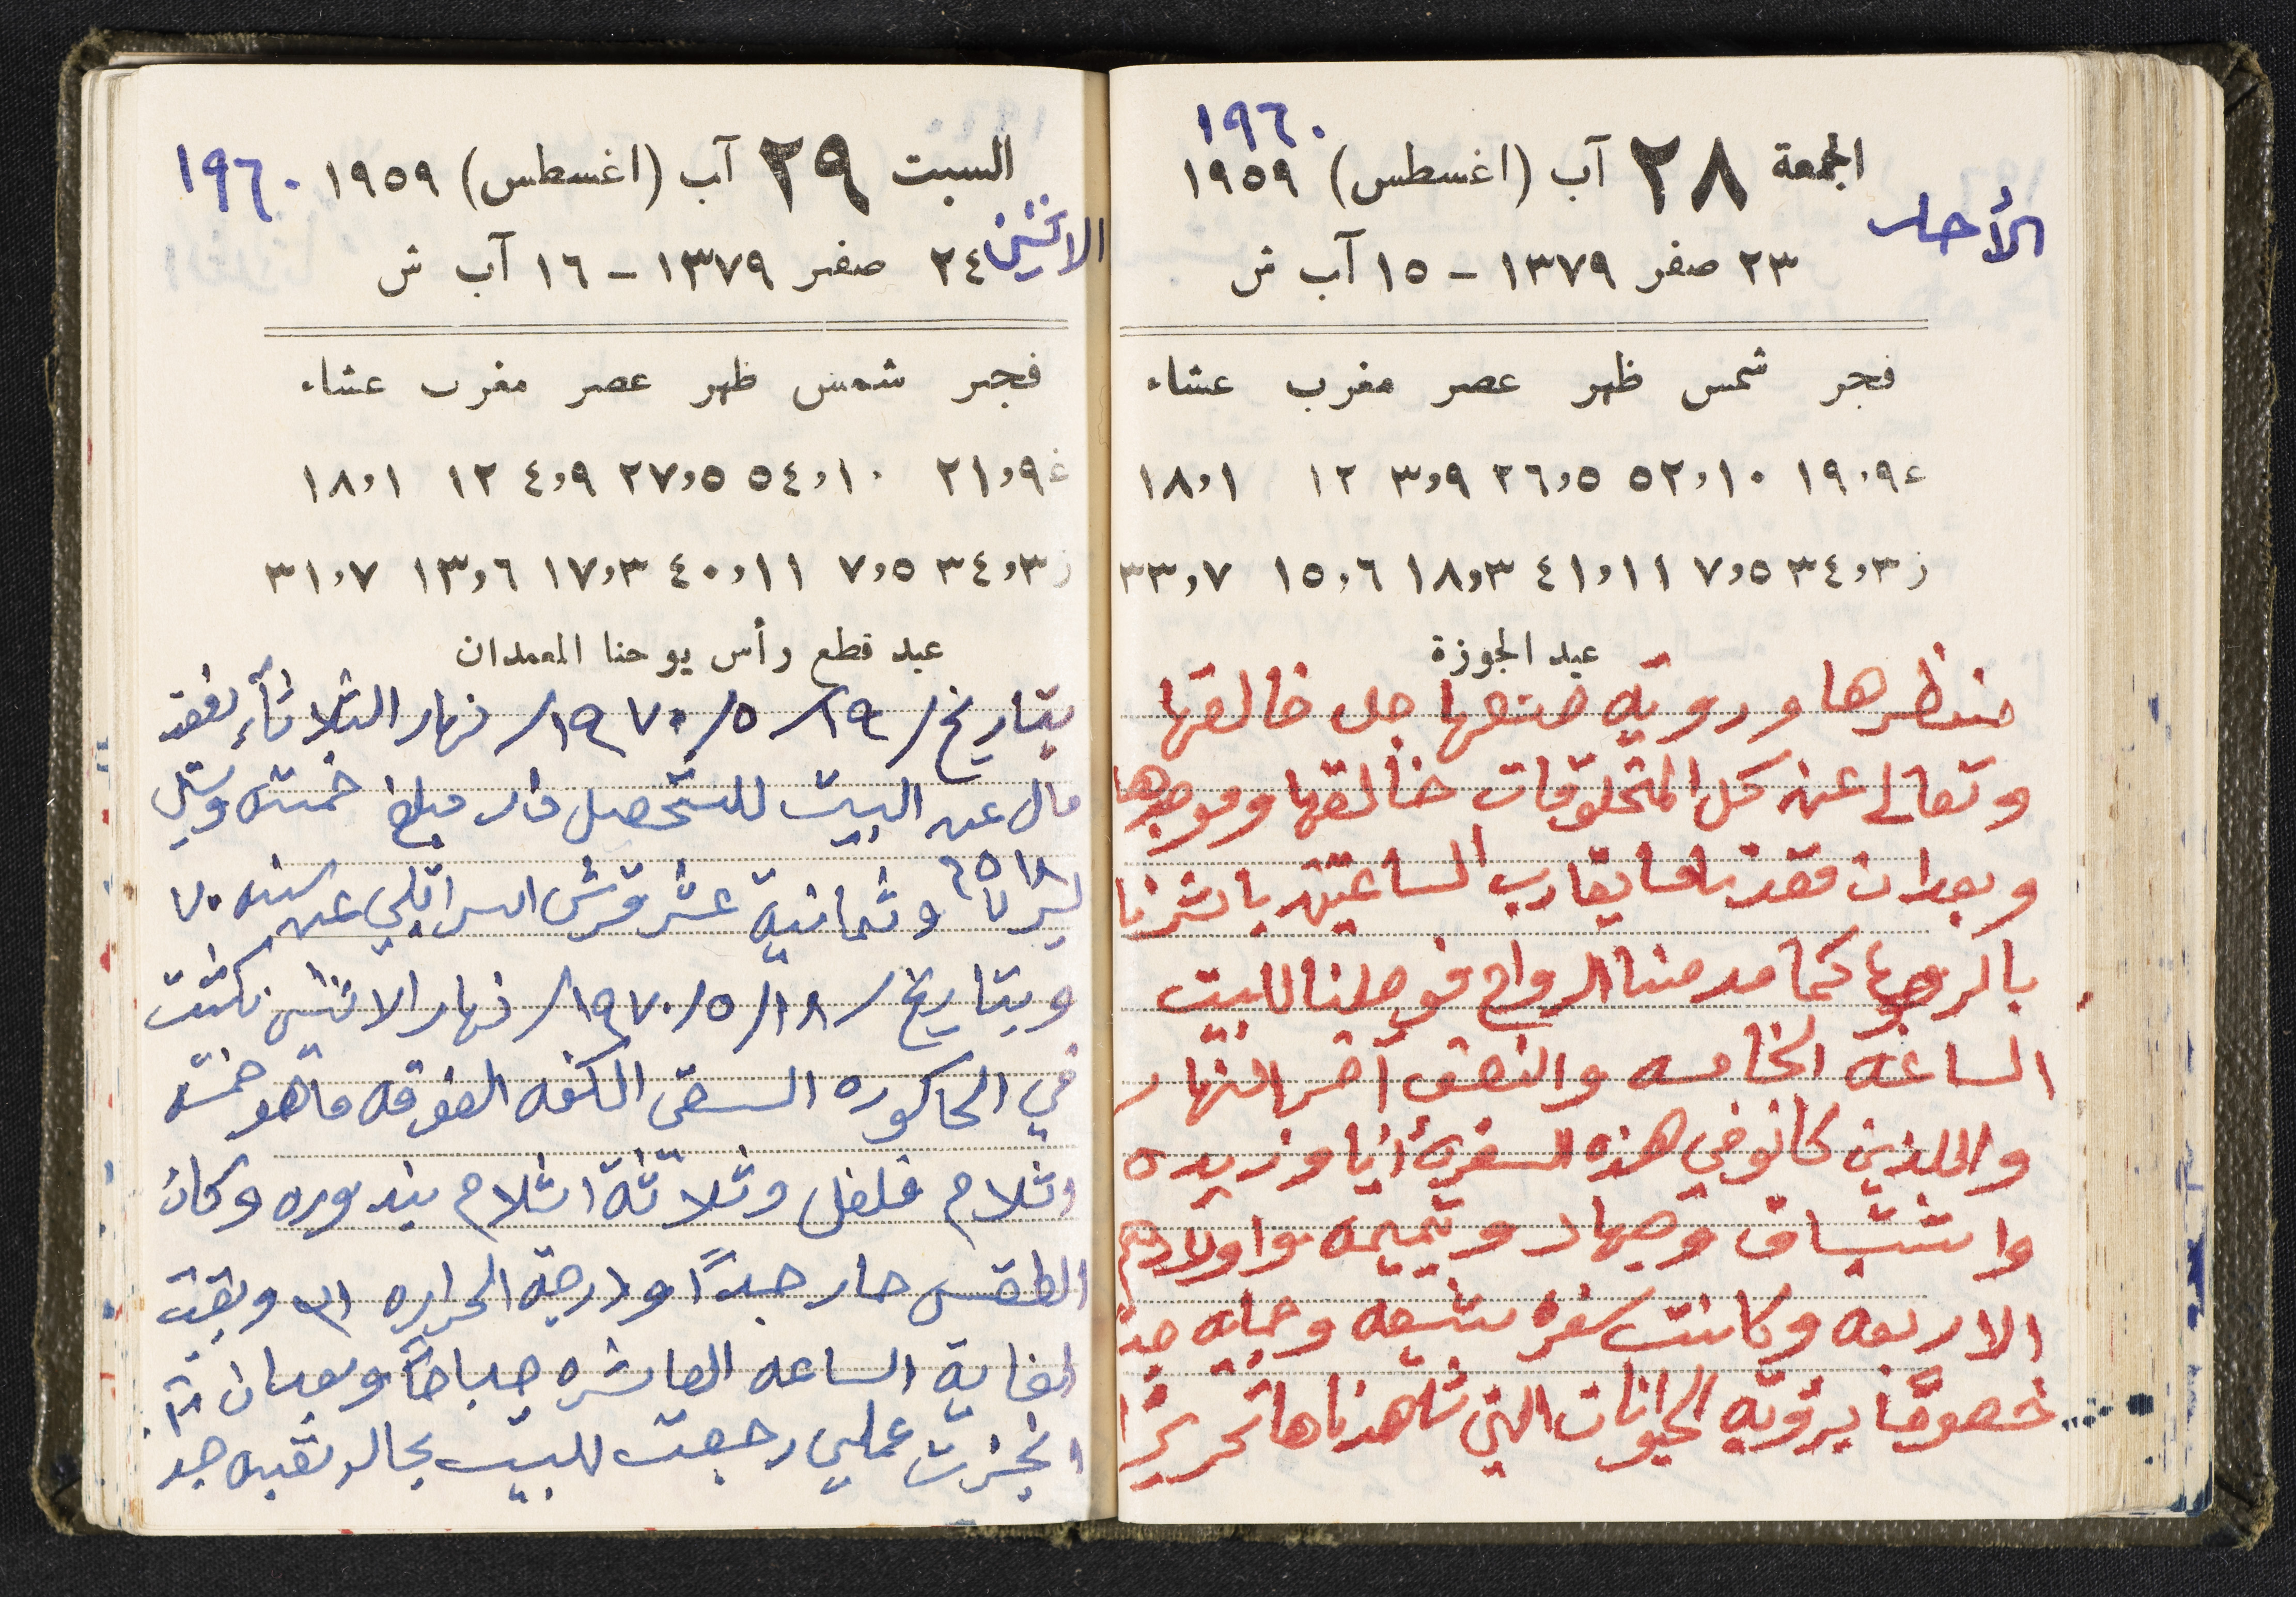 ١٩٦٠
الجمعة ٢٨ آب (اغسطس) ١٩٥٩
الأحد
٢٣ صفر ١٣٧٩ - ١٥ آب ش
فجر شمس ظهر عصر مغرب عشاء
ع ١٩،٩ ٥٢،١٠ ٢٦،٥ ٣،٩ ١٢ ١٨،١
ز ٣٤،٣ ٧،٥ ٤١،١١ ١٨،٣ ١٥،٦ ٣٣،٧
عيد الجوزة
منظرها ورويه صنعها جل خالقها
وتعالى عن كل المخلوقات خالقها وموجدها
وبعد ان قعدنا ما يقارب الساعتين باشرنا
بالرجوع كما مد منا الرواح فوصلنا للبيت
الساعه الخامسه والنصف آخر النهار
واللذين كانو في هذه السفرة أنا وزيده
واشتياق وجهاد وتميمه واولادهم
الاربعه وكانت سفرة شيقه وجميله جدا
خصوصًا برؤيه الحيوانات التي شاهدناها تحريرًا
السبت ٢٩ آب (اغسطس) ١٩٥٩ ١٩٦٠
الاثنين
٢٤ صفر ١٣٧٩ - ١٦ آب ش
فجر شمس ظهر عصر مغرب عشاء
ع ٢١،٩ ٥٤،١٠ ٢٧،٥ ٤،٩ ١٢ ١٨،١
ز ٣٤،٣ ٧،٥ ٤٠،١١ ١٧،٣ ١٣،٦ ٣١،٧
عيد قطع رأس يوحنا المعمدان
بتاريخ /١٩/٥/١٩٧٠/ نهار الثلاثاء نفقد
مال عن البيت للمتحصل فار مبلغ خمسه وستين
ليرة ٦٥١٨ وثمانية عشر قرش اسرائيلي عن سنه ٧٠
وبتاريخ /١٨/٥/١٩٧٠/ نهار الاثنين نكشت
في الحاكوره السقي الكفه الفوقه ما هو خمسه
اثلام فلفل وثلاثة اثلام بندوره وكان
الطقس حار جدًا ودرجة الحراره ٣١ وبقيت
لغاية الساعه العاشره صباحًا وبعد ان
انجزت عملي رجعت للبيت بحاله تعبه جدا